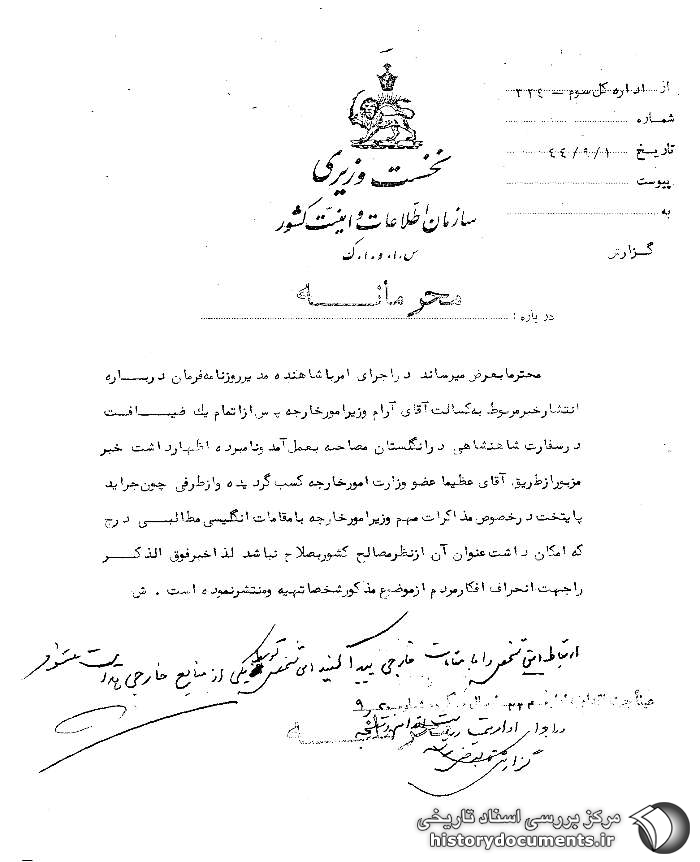 از اداره کل سوم – ۳۲۴
شماره
تاریخ ۴۴/۹/۱
پیوست
به
گزارش
نخست وزیری
سازمان اطلاعات و امنیت کشور
س.ا.و.ا.ک
محرمانه
درباره :
محترما بعرض میرساند در اجرای امر با شاهنده مدیر روزنامه فرمان درباره
انتشار خبر مربوط به کسالت آقای آرام وزیر امور خارجه پس از اتمام یک ضیافت
در سفارت شاهنشاهی در انگلستان مصاحبه بعمل آمد و نامبرده اظهار داشت خبر
مزبور از طریق آقای عظیما عضو وزارت امور خارجه کسب گردیده و از طرفی چون جراید
پایتخت در خصوص مذاکرات مهم وزیر امور خارجه با مقامات انگلیسی مطالبی درج
که امکان داشت عنوان آن از نظر مصالح کشور بصلاح نباشد لذا خبر فوق الذکر
را جهت انحراف افکار مردم از موضوع مذکور شخصا تهیه و منتشر نموده است . ش
ارتباط این شخص را با مقامات خارجی پیدا کنید این شخص توسط یکی از منابع خارجی
گزارش
مرکز بررسی اسناد تاریخی
historydocuments.ir